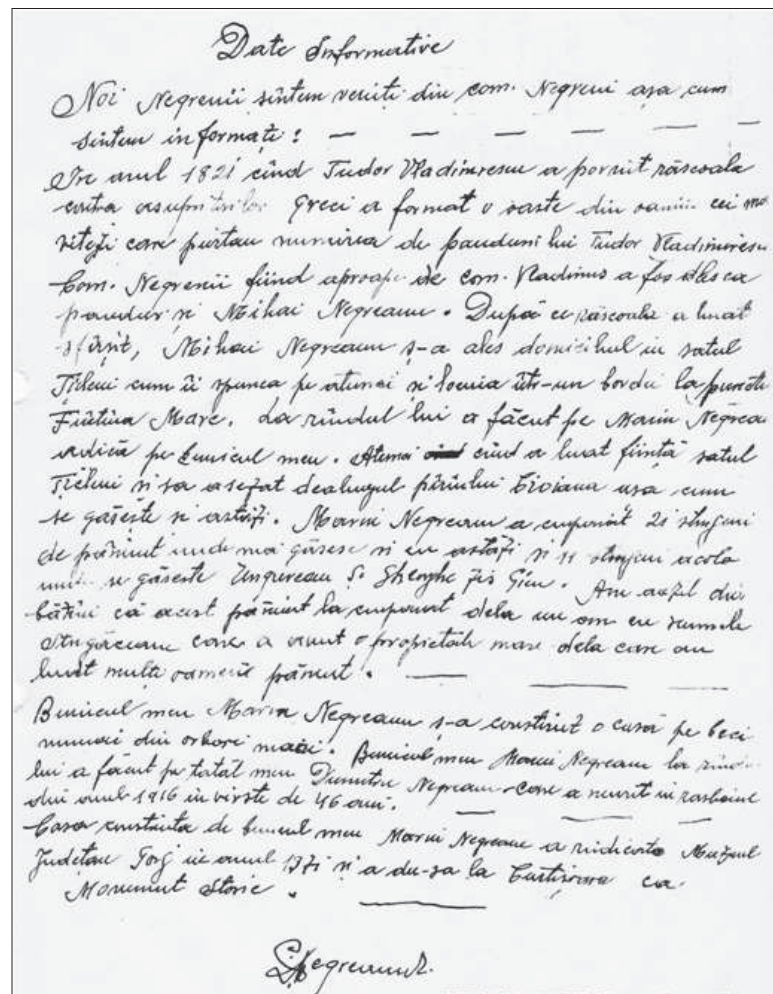 Date Informative
Noi Negrenii sîntem veniți din com. Negreni așa cum
sîntem informați: — — — — —
În anul 1821 cînd Tudor Vladimirescu a pornit răscoala
contra asupritorilor Greci a format o oaste din oamenii cei mai
viteji care purtau numirea de panduni lui Tudor Vladimirescu
Com. Negrenii fiind aproape de com. Vladimir a fos ales ca
pandur și Mihai Negreanu. După ce răscoala a luat
sfîrșit, Mihai Negreanu ș-a ales domiciliul în satul
Țicleni cum îi spunea pe atunci și locuia într-un bordei la punctu
Fîntîna Mare. La rîndul lui a făcut pe Marin Negreanu
adică pe bunicul meu. Atunci cînd a luat ființă satul
Țicleni si sa asezat dealungul pîrîului Cioiana așa cum
se găsește si astăzi. Marin Negreanu a cumpărat 21 stînjeni
de pămînt unde mai găsesc si eu astăzi si 11 stînjeni acolo
unde se găsește Ungureanu Gheorghe Am auzit din
bătrîni că acest pămînt la cumparat dela un om cu numele
Strugăceanu care a avut o proprietate mare dela care au
luat mulți oameni pămînt. — — —
Bunicul meu Marin Negreanu ș-a construit o casă pe beci
numai din arbori masi. Bunicul meu Marin Negreanu la rîndu
lui a făcut pe tatăl meu Dumitru Negreanu care a murit in rasboiul
din anul 1916 in vîrste de 46 ani. — — —
Casa construita de bunicul meu Marin Negreanu a ridicato Muzeul
Județau Gorj in anul 1971 si a du-sa la Curtișoara ca
Monument Storic. —
Negreanu